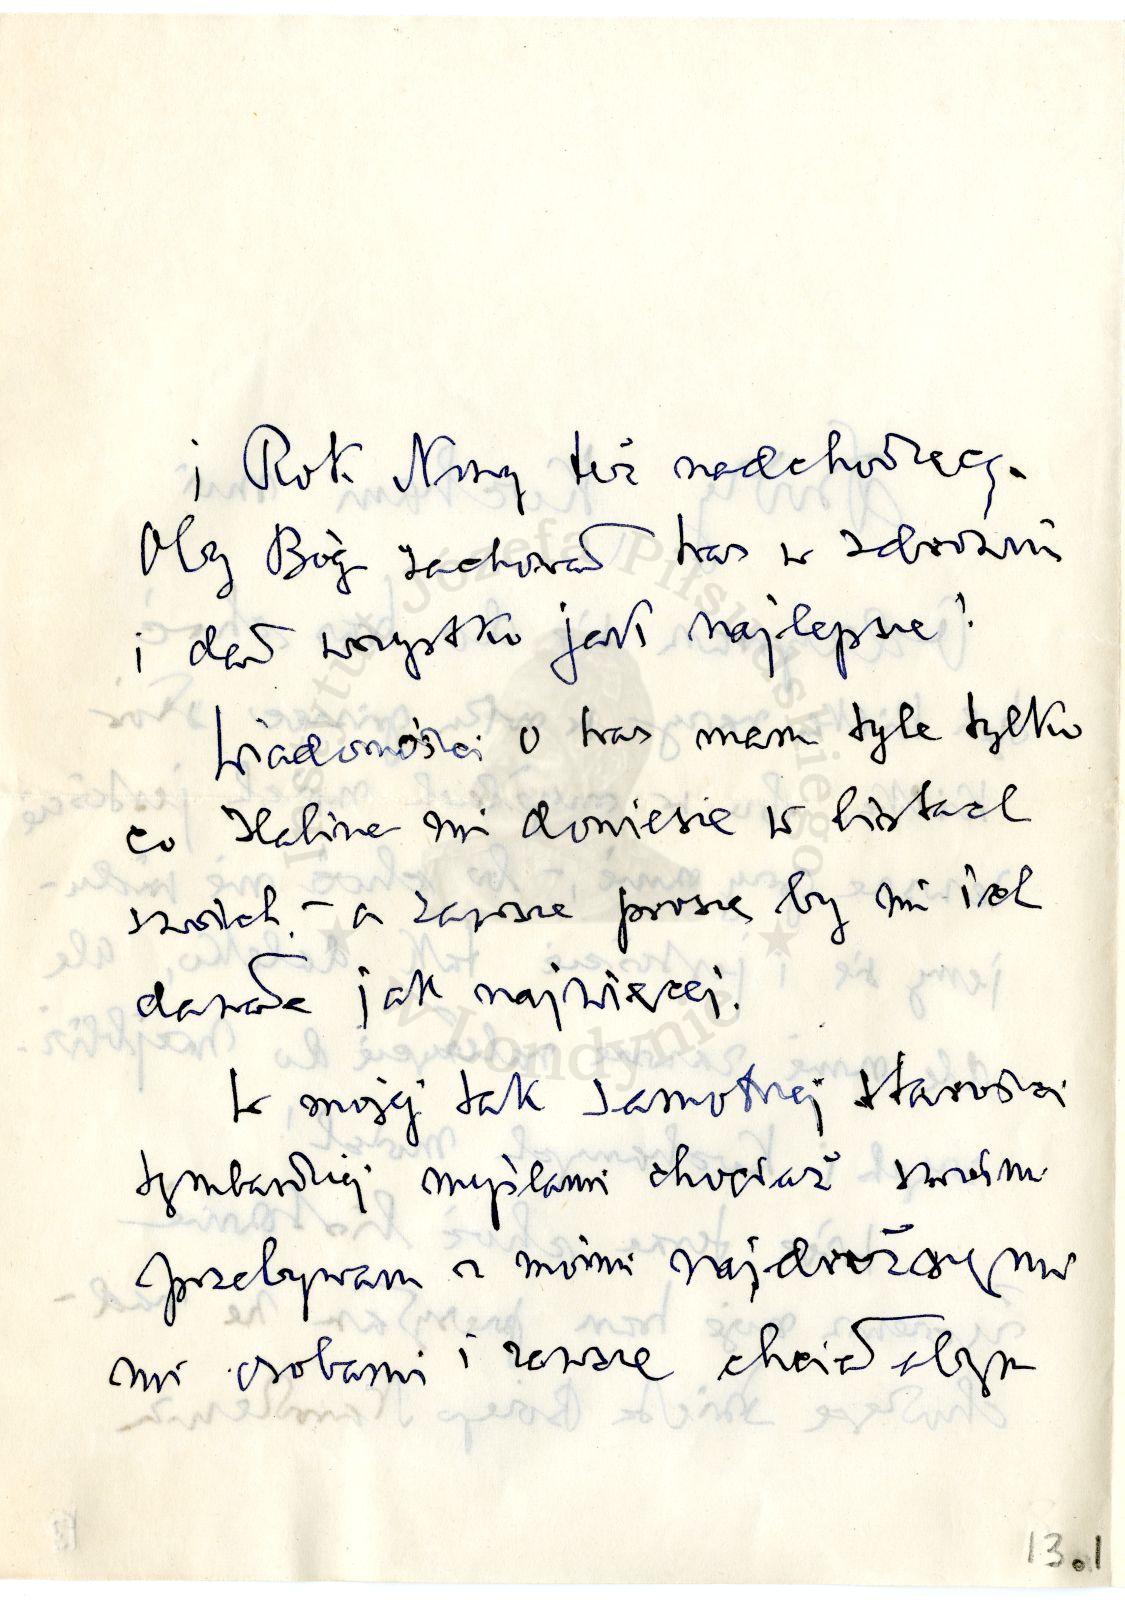 i Rok Nowy też nadchodzący.
Oby Bóg zachował Was w zdrowiu
i dał wszystko jak najlepsze!
Wiadomości o Was mam tyle tylko
co Halina mi doniesie w listach
swoich, – a zawsze proszę by mi ich
dawała jak najwięcej.
W mojej tak samotnej starości
tymbardziej myślami chociaż swoimi
przebywam z moimi najdroższymi
mi osobami i zawsze chciałabym
13.1
Instytut Józefa Piłsudskiego
w Londynie